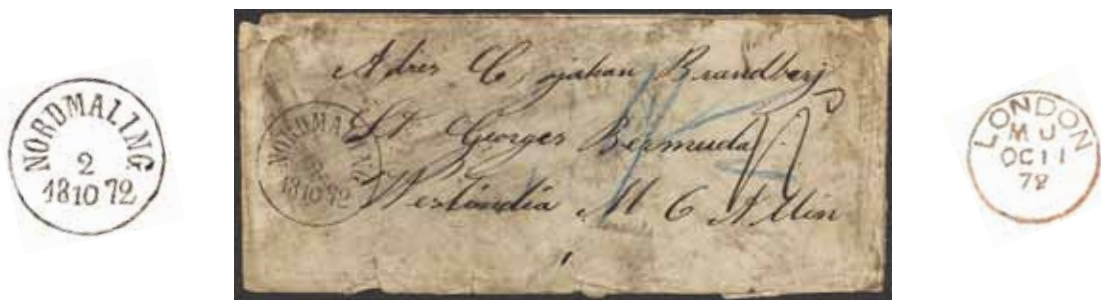 NORDMALING
2
1810 72
Adrés C, johan Brandberj
St Georges Bermuda
Westindia M C A Min
NORDMALING
1810 72
LONDON
MU
OC 11
72